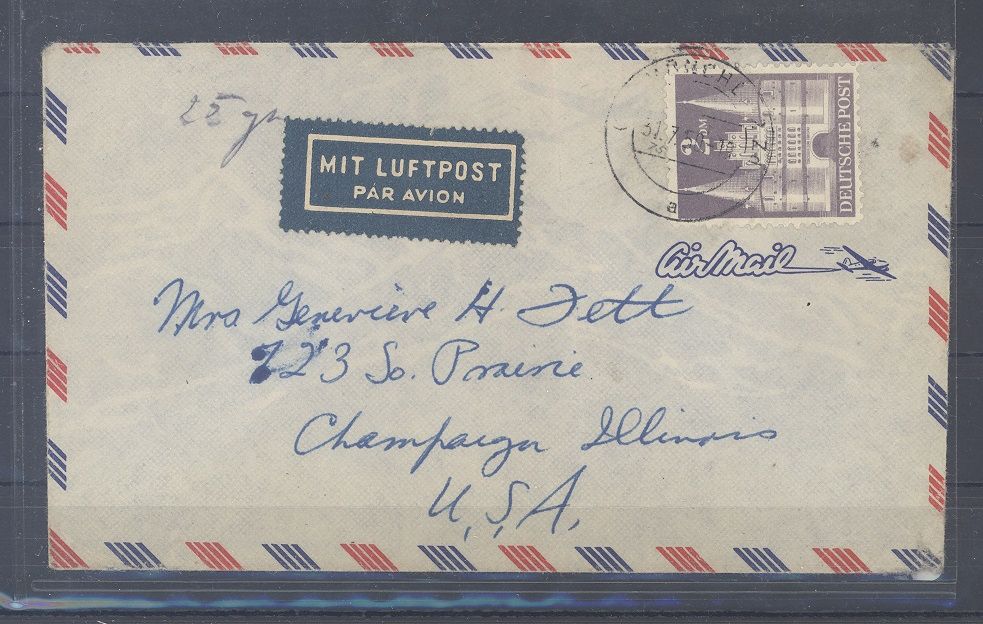 22 gr
MIT LUFTPOST
PAR AVION
2 DM
DEUTSCHE POST
31.7.50
B
Air Mail
Mrs. Genevieve H. Fett
723 So. Prairie
Champaign Illinois
U.S.A.